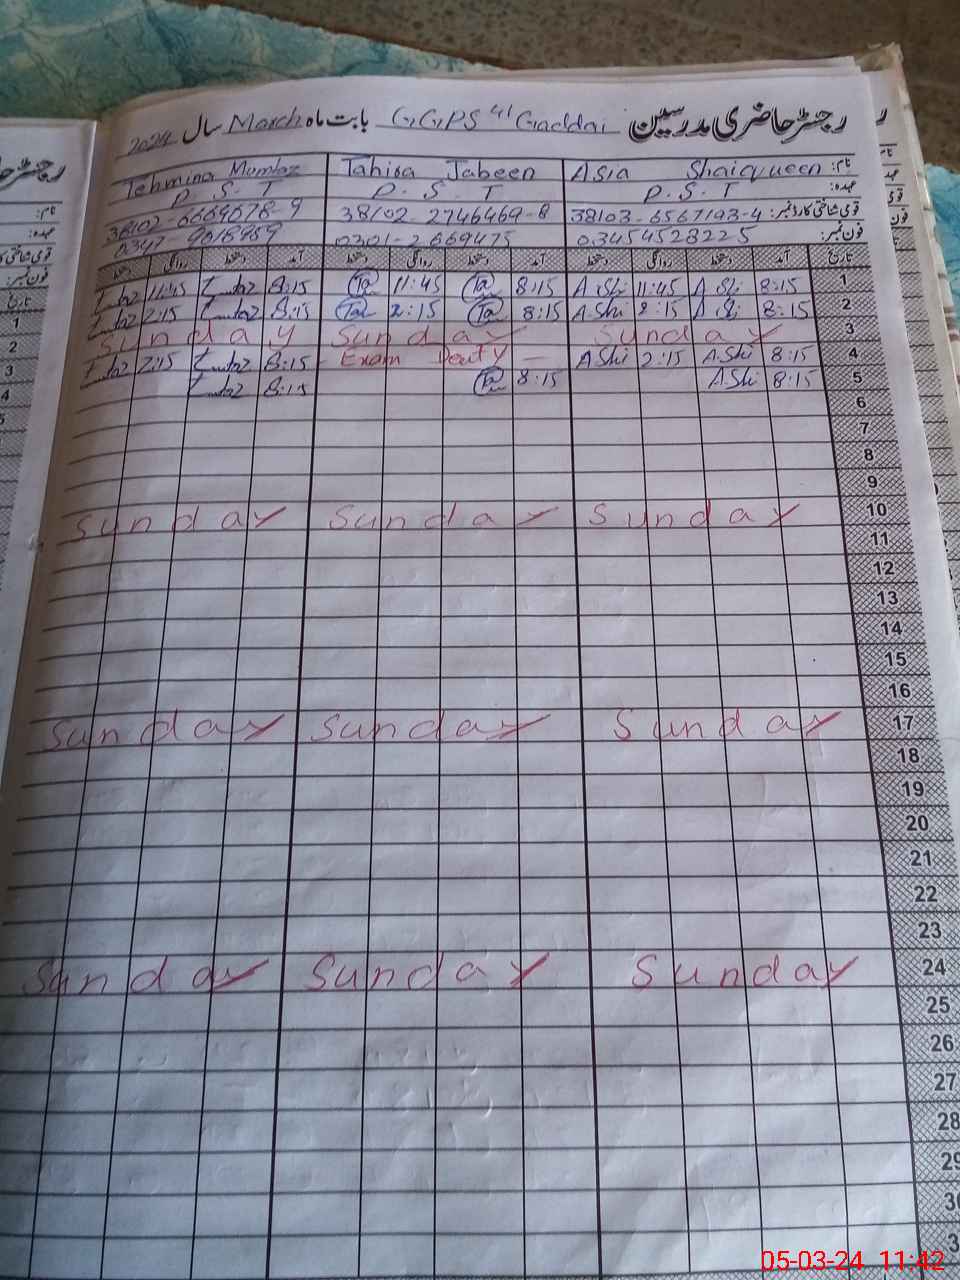 رجسٹر حاضری مدرسین GGPS 41 Gaddai بابت ماہ March سال 2024
نام: Asia Shaiqueen Tahira Jabeen Tehmina Mumtaz
عہدہ: P.S.T P.S.T P.S.T
قومی شناختی کارڈ نمبر: 38103-6567193-4 38102-2746469-8 38102-6669678-9
فون نمبر: 03454528225 0301-2669475 0347-9018969
تاریخ آمد دستخط روانگی دستخط آمد دستخط روانگی دستخط آمد دستخط روانگی دستخط
1 8:15 A.Shi 11:45 A.Shi 8:15 Ta 11:45 Ta 8:15 11:45
2 8:15 A.Shi 2:15 A.Shi 8:15 Ta 2:15 Ta 8:15 2:15
3 Sunday Sunday Sunday
4 8:15 A.Shi 2:15 A.Shi Exam Duty 8:15 2:15
5 8:15 A.Shi 8:15 Ta 8:15
6
7
8
9
10 Sunday Sunday Sunday
11
12
13
14
15
16
17 Sunday Sunday Sunday
18
19
20
21
22
23
24 Sunday Sunday Sunday
25
26
27
28
29
30
05-03-24 11:42